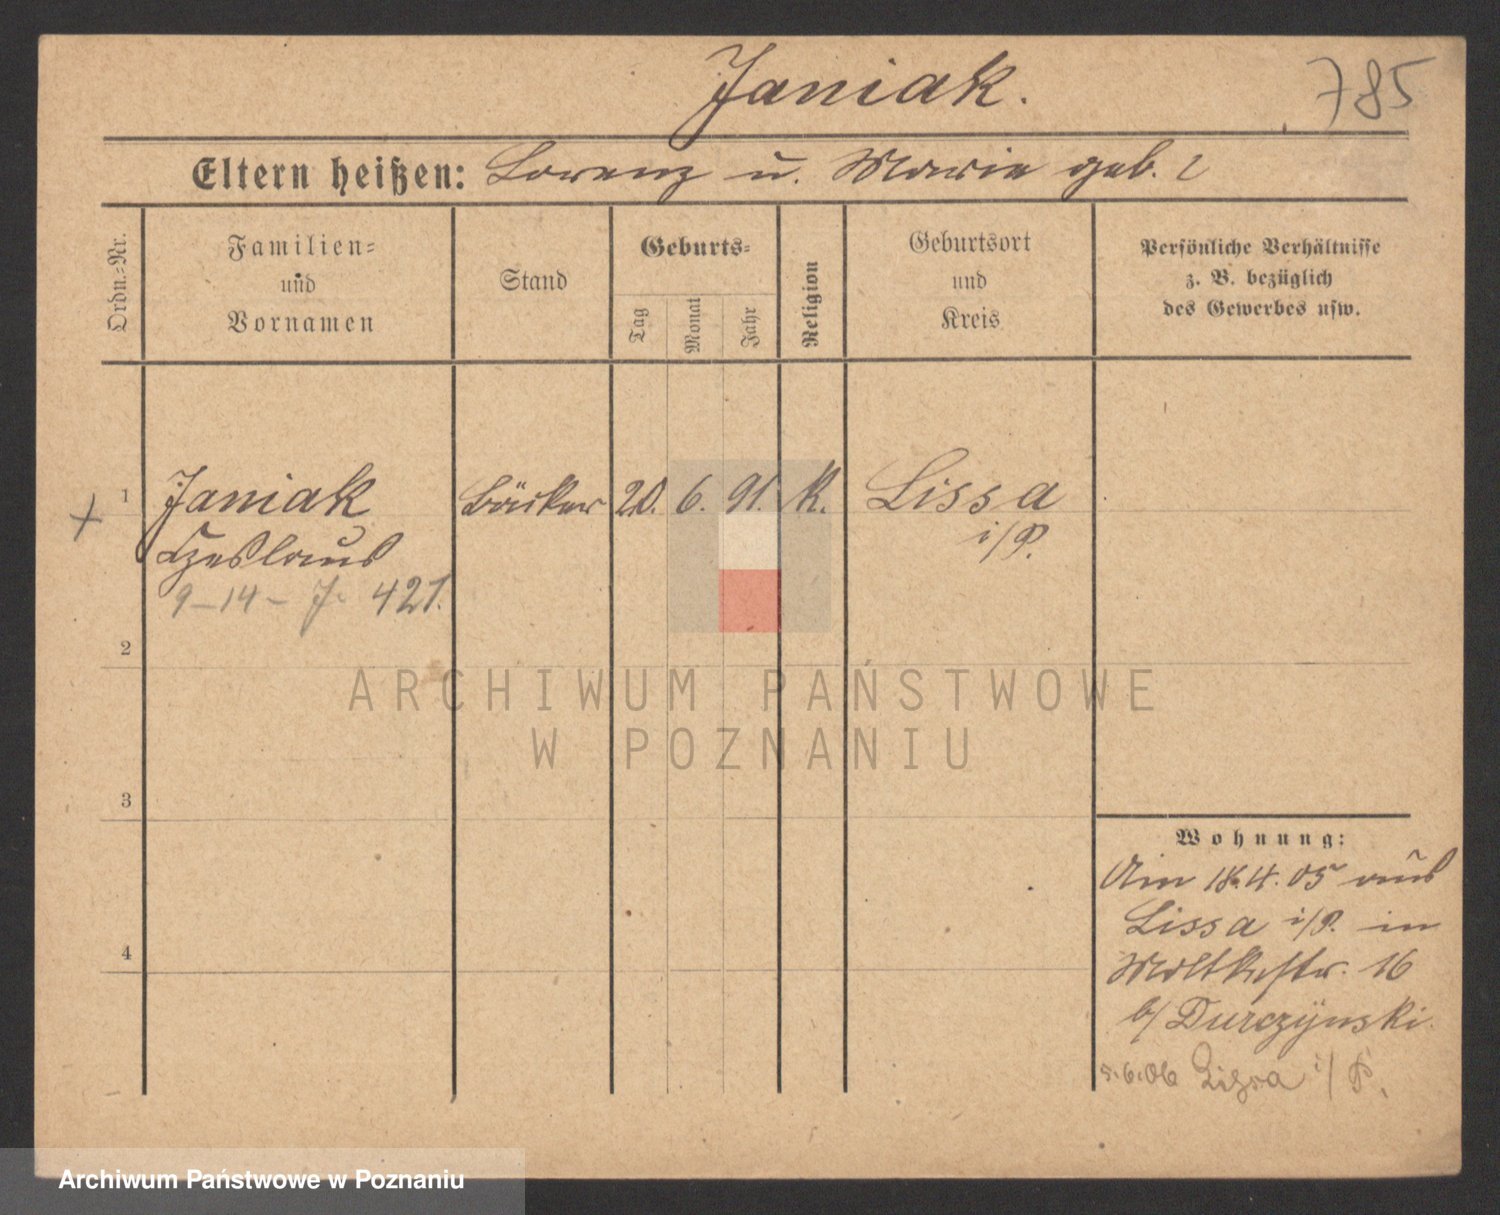 Janiak.
785
Eltern heißen: Lorenz u. Marie geb. ?
Ordn.=Nr.
Familien=
und
Vornamen
Stand
Geburts=
Tag
Monat
Jahr
Religion
Geburtsort
und
Kreis
Persönliche Verhältnisse
z. B. bezüglich
des Gewerbes usw.
+ 1 Janiak Bäcker 20. 6. 91. K. Lissa
Czeslaus i/P.
9-14- J. 421.
2
3
4
Wohnung:
Am 18.4.05 aus
Lissa i/P. in
Moltkestr. 16
b/ Durczynski.
5.6.06 Lissa i/P.
ARCHIWUM PAŃSTWOWE
W POZNANIU
Archiwum Państwowe w Poznaniu